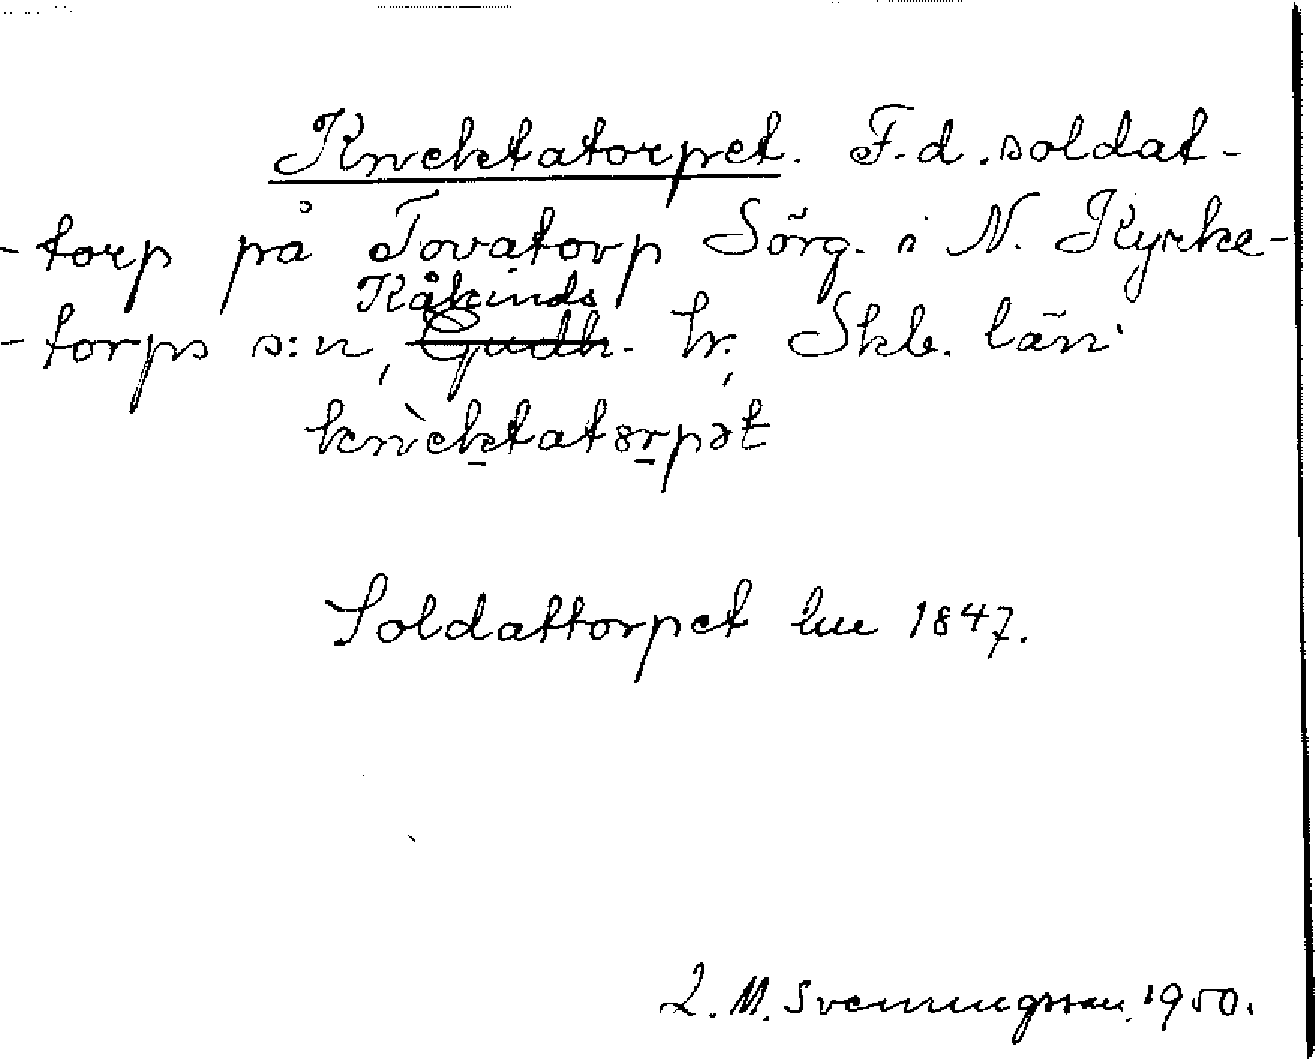 Knektatorpet. F.d. soldat-
-torp på Tovatorp Sörg. i N. Kyrke-
Kåkinds
-torps s:n, Gudh. hr., Skb. län
knèktatorpət
Soldattorpet hu 1847.
L. M. Svenningsson 1950.